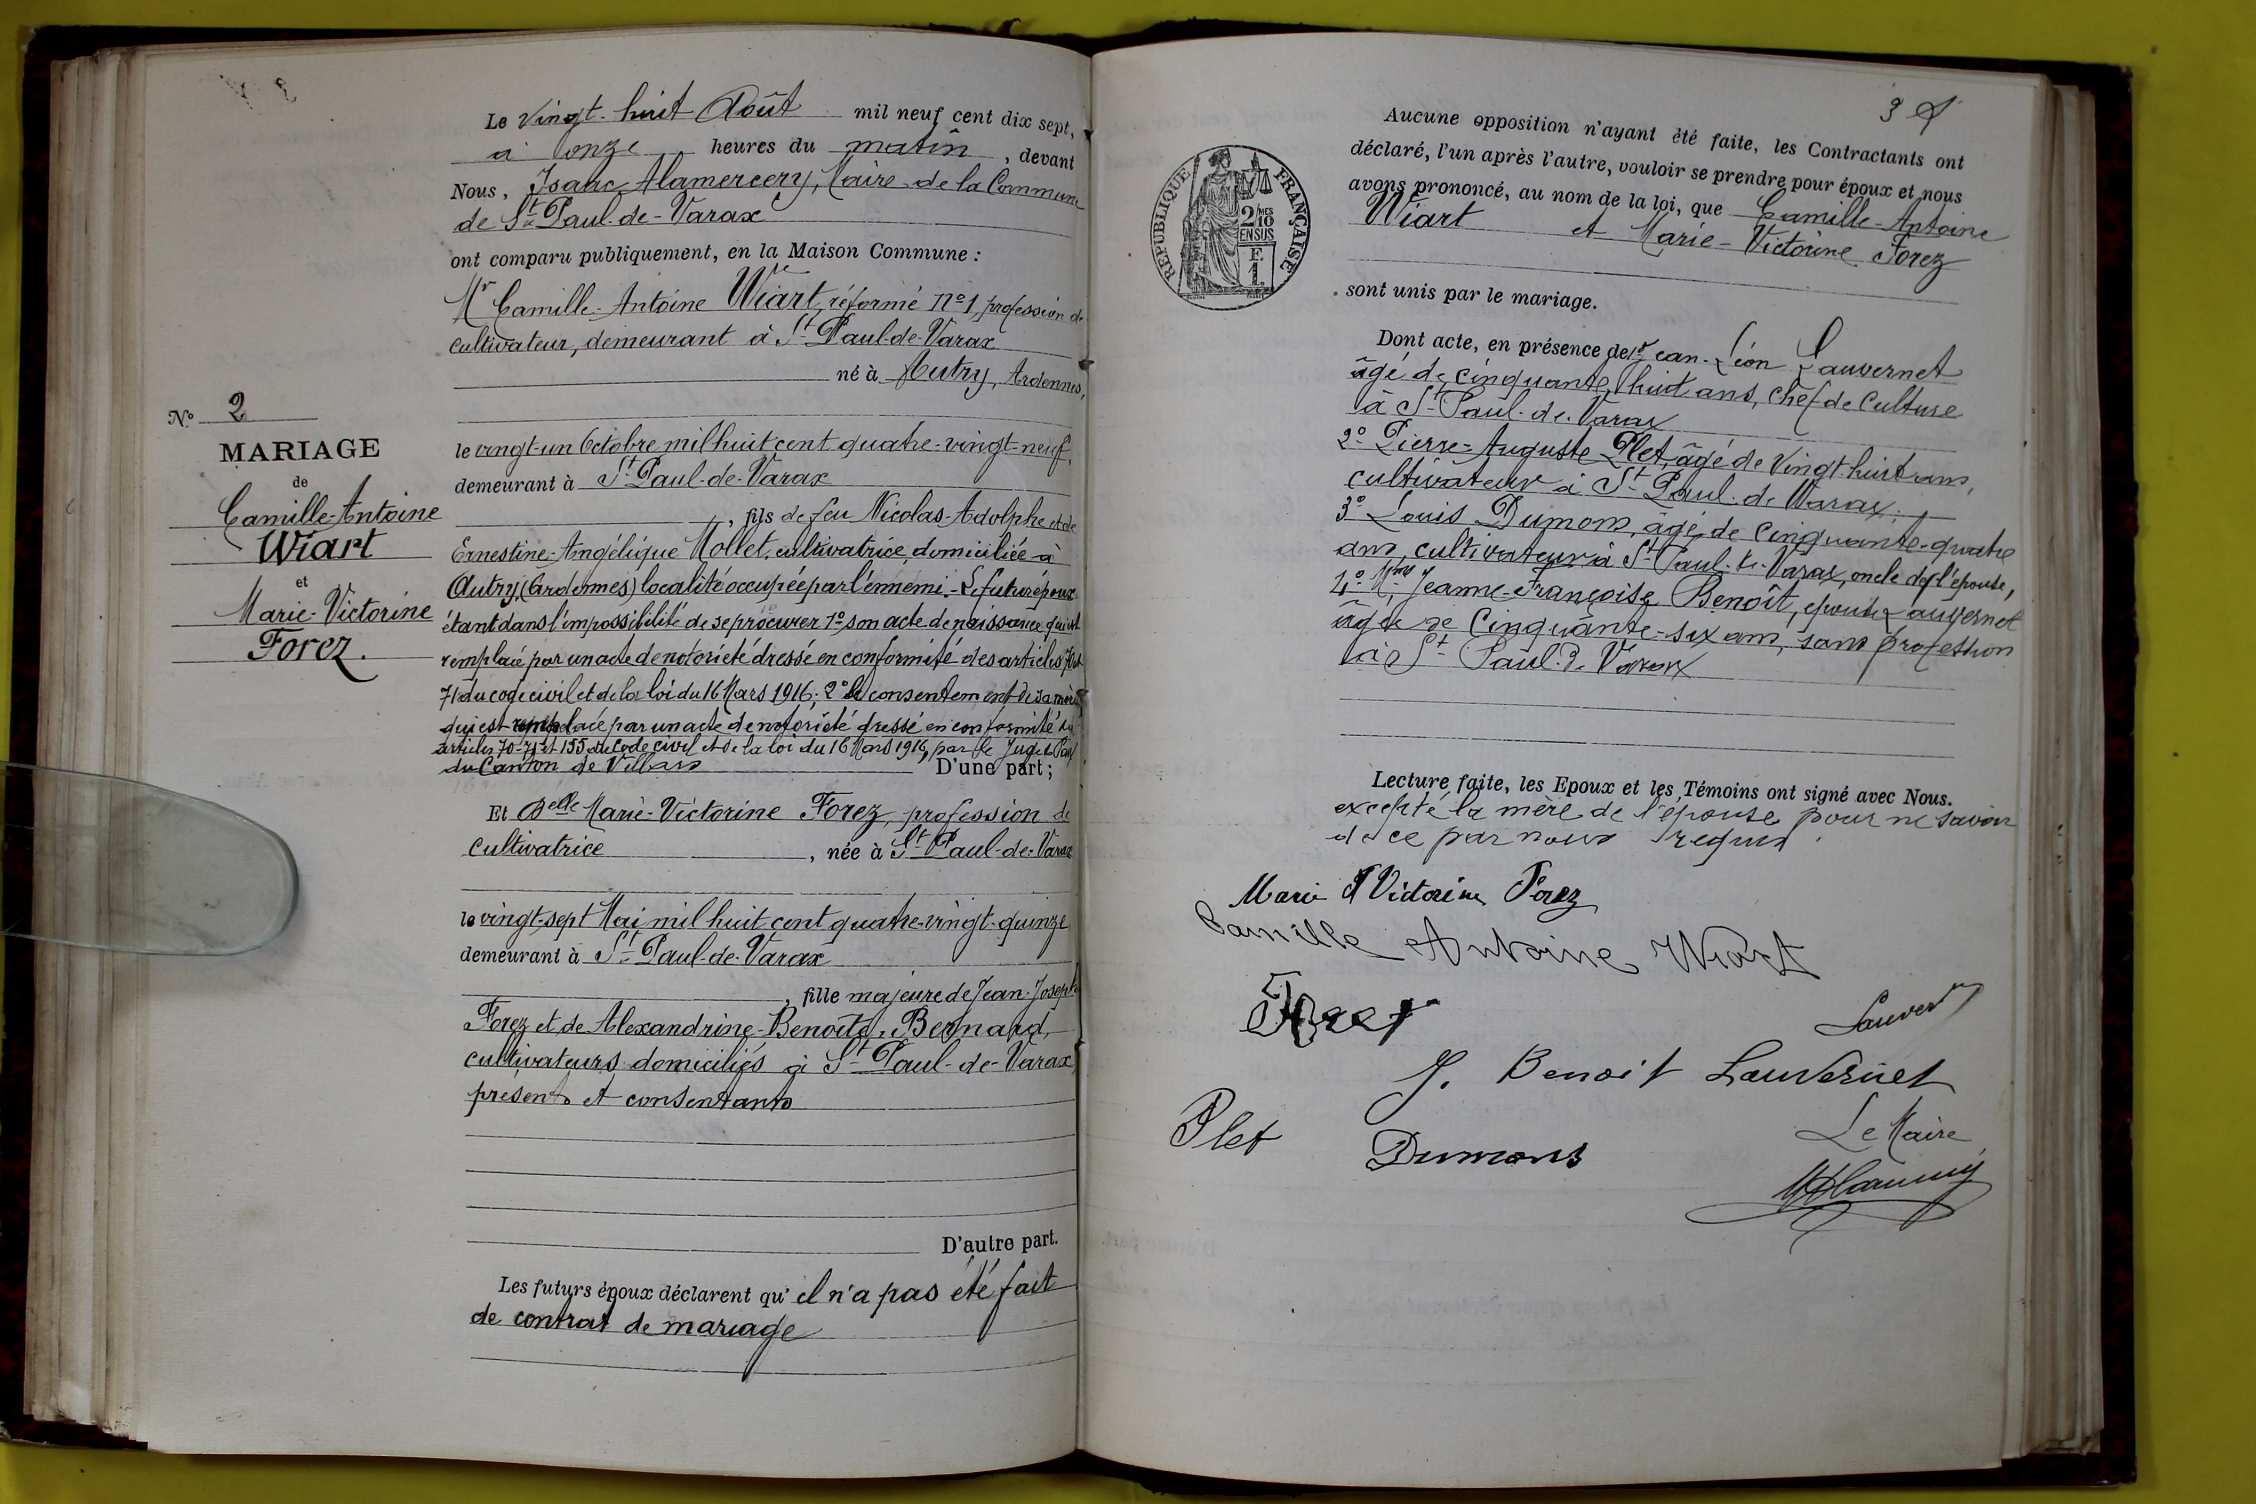 Le Vingt-huit Août mil neuf cent dix sept,
à onze heures du matin, devant
Nous, Isaac Alamercery, Maire de la Commune
de St Paul-de-Varax
ont comparu publiquement, en la Maison Commune :
Mr Camille-Antoine Wiart, réformé No 1, profession de
cultivateur, demeurant à St Paul-de-Varax
né à Autry, Ardennes,
le vingt-un Octobre mil huit cent quatre-vingt-neuf,
demeurant à St Paul-de-Varax
, fils de feu Nicolas-Adolphe et de
Ernestine-Angélique Mollet, cultivatrice, domiciliée à
Autry, (Ardennes) localité occupée par l'ennemi.- Le futur époux
étant dans l'impossibilité de se procurer 1o son acte de naissance qui est
remplacé par un acte de notoriété dressé en conformité des articles 70 et
71 du code civil et de la loi du 16 Mars 1916; 2o le consentement de sa mère
qui est remplacé par un acte de notoriété dressé en conformité des
articles 70-71 et 155 du Code civil et de la loi du 16 Mars 1916, par le Juge de Paix
du Canton de Villars D'une part;
No 2
MARIAGE
de
Camille-Antoine
Wiart
et
Marie-Victorine
Forez.
Et Delle Marie-Victorine Forez, profession de
cultivatrice, née à St Paul-de-Varax
le vingt-sept Mai mil huit cent quatre-vingt-quinze
demeurant à St Paul-de-Varax
, fille majeure de Jean-Joseph
Forez et de Alexandrine-Benoîte Bernard,
cultivateurs domiciliés à St Paul-de-Varax,
présents et consentants
D'autre part.
Les futurs époux déclarent qu'il n'a pas été fait
de contrat de mariage
3
Aucune opposition n'ayant été faite, les Contractants ont
déclaré, l'un après l'autre, vouloir se prendre pour époux et nous
avons prononcé, au nom de la loi, que Camille-Antoine
Wiart et Marie-Victorine Forez
sont unis par le mariage.
RÉPUBLIQUE FRANÇAISE
2 MES
10
EN SUS
F.
1.
Dont acte, en présence de 1o Jean-Léon Lauvernet
âgé de cinquante-huit ans, chef de culture
à St Paul-de-Varax
2o Pierre-Auguste Plet, âgé de vingt-huit ans,
cultivateur à St Paul-de-Varax,
3o Louis Dumons, âgé de cinquante-quatre
ans, cultivateur à St Paul-de-Varax, oncle de l'épouse,
4o Mme Jeanne-Françoise Benoît, épouse Lauvernet
âgée de cinquante-six ans, sans profession
à St Paul-de-Varax
Lecture faite, les Epoux et les Témoins ont signé avec Nous.
excepté la mère de l'épouse pour ne savoir
de ce par nous requis
Marie Victorine Forez
Camille Antoine Wiart
Forez
Lauvernet
J. Benoit Lauvernet
Plet
Dumons
Le Maire